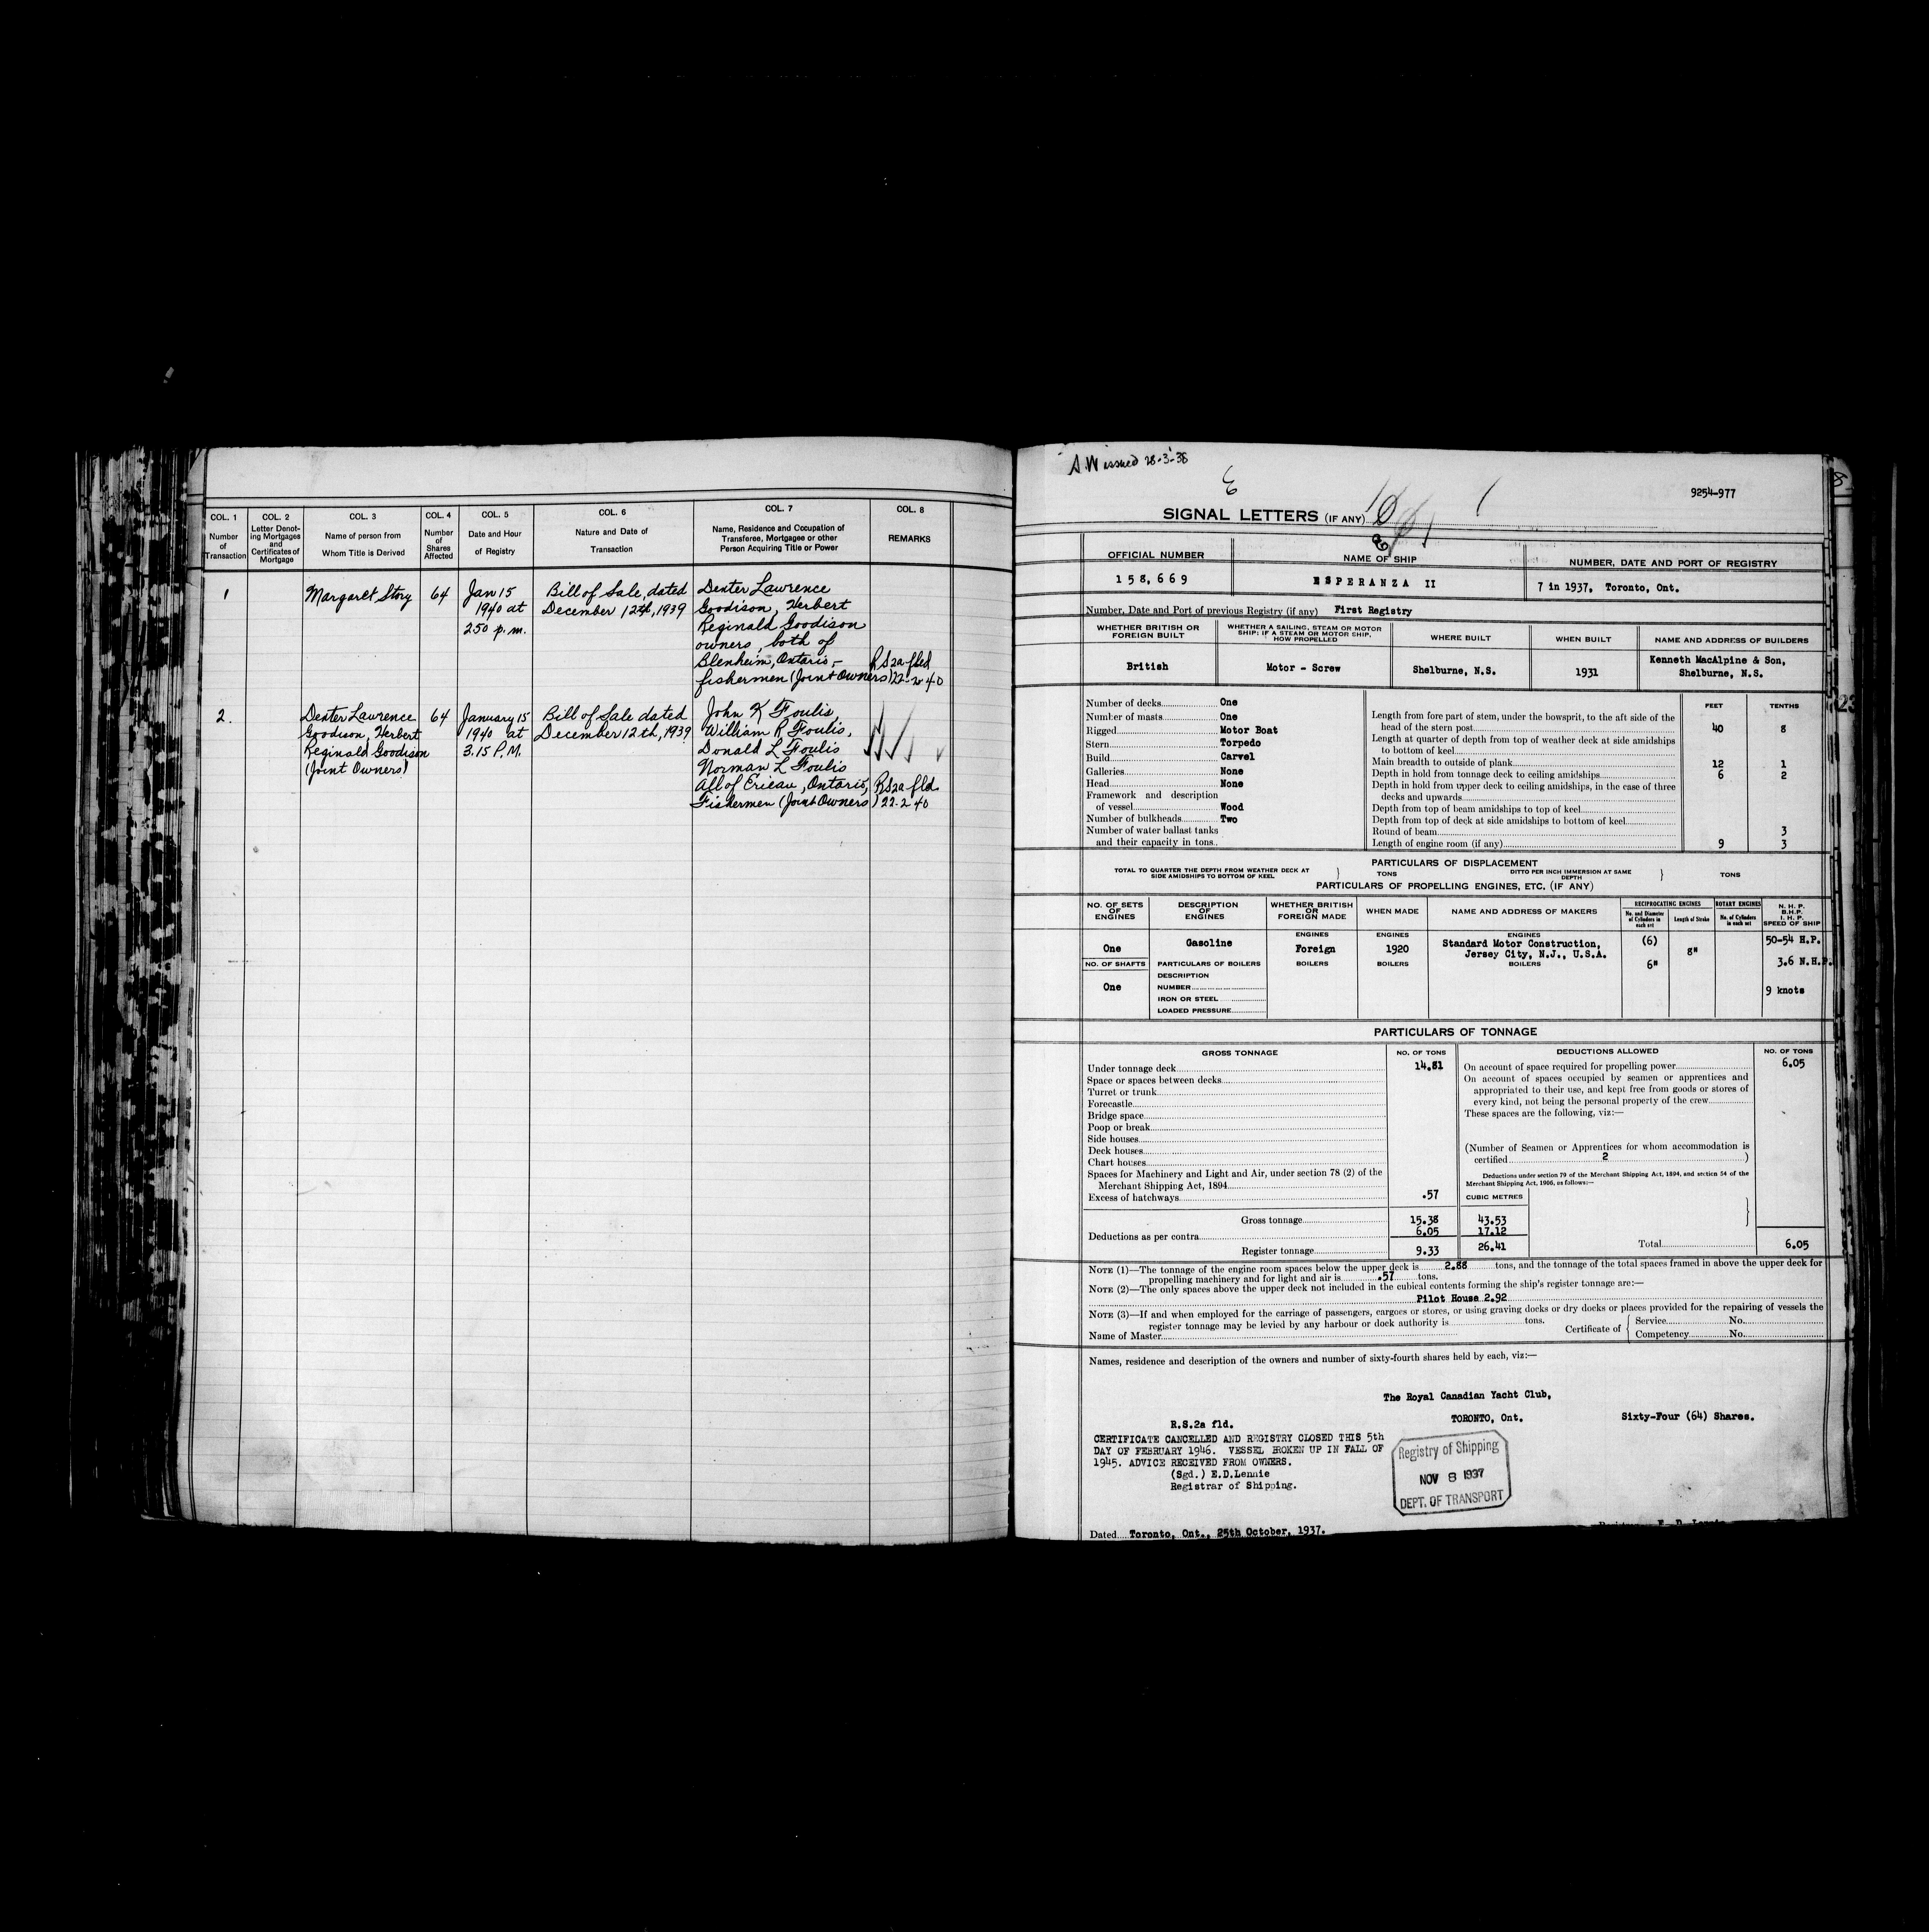 COL. 1
Number
of
Transaction
COL. 2
Letter Denot-
ing Mortgages
and
Certificates of
Mortgage
COL. 3
Name of person from
Whom Title is Derived
COL. 4
Number
of
Shares
Affected
COL. 5
Date and Hour
of Registry
COL. 6
Nature and Date of
Transaction
COL. 7
Name, Residence and Occupation of
Transferee, Mortgagee or other
Person Acquiring Title or Power
COL. 8
REMARKS
1
Margaret Story
64
Jan 15
1940 at
2.50 p.m.
Bill of Sale, dated
December 12th, 1939
Dexter Lawrence
Goodison, Herbert
Reginald Goodison
owners, both of
Blenheim, Ontario,-
fishermen (Joint Owners)
RS2a fled
22-2-40
2.
Dexter Lawrence
Goodison, Herbert
Reginald Goodison
(Joint Owners)
64
January 15
1940 at
3.15 P.M.
Bill of Sale dated
December 12th, 1939
John K Foulis
William R Foulis,
Donald L Foulis
Norman L Foulis
All of Erieau, Ontario,
Fishermen (Joint Owners)
RS2a fld
22-2-40
A.W issued 28-3-38
9254-977
SIGNAL LETTERS (IF ANY)
OFFICIAL NUMBER
158,669
NAME OF SHIP
ESPERANZA II
NUMBER, DATE AND PORT OF REGISTRY
7 in 1937, Toronto, Ont.
Number, Date and Port of previous Registry (if any) First Registry
WHETHER BRITISH OR
FOREIGN BUILT
British
WHETHER A SAILING, STEAM OR MOTOR
SHIP; IF A STEAM OR MOTOR SHIP,
HOW PROPELLED
Motor - Screw
WHERE BUILT
Shelburne, N.S.
WHEN BUILT
1931
NAME AND ADDRESS OF BUILDERS
Kenneth MacAlpine & Son,
Shelburne, N.S.
Number of decks One
Number of masts One
Rigged Motor Boat
Stern Torpedo
Build Carvel
Galleries None
Head None
Framework and description
of vessel Wood
Number of bulkheads Two
Number of water ballast tanks
and their capacity in tons
FEET TENTHS
Length from fore part of stem, under the bowsprit, to the aft side of the
head of the stern post 40 8
Length at quarter of depth from top of weather deck at side amidships
to bottom of keel
Main breadth to outside of plank 12 1
Depth in hold from tonnage deck to ceiling amidships 6 2
Depth in hold from upper deck to ceiling amidships, in the case of three
decks and upwards
Depth from top of beam amidships to top of keel
Depth from top of deck at side amidships to bottom of keel
Round of beam 3
Length of engine room (if any) 9 3
PARTICULARS OF DISPLACEMENT
TOTAL TO QUARTER THE DEPTH FROM WEATHER DECK AT
SIDE AMIDSHIPS TO BOTTOM OF KEEL
TONS
DITTO PER INCH IMMERSION AT SAME
DEPTH
TONS
PARTICULARS OF PROPELLING ENGINES, ETC. (IF ANY)
NO. OF SETS
OF
ENGINES
One
NO. OF SHAFTS
One
DESCRIPTION
OF
ENGINES
Gasoline
PARTICULARS OF BOILERS
DESCRIPTION
NUMBER
IRON OR STEEL
LOADED PRESSURE
WHETHER BRITISH
OR
FOREIGN MADE
ENGINES
Foreign
BOILERS
WHEN MADE
ENGINES
1920
BOILERS
NAME AND ADDRESS OF MAKERS
ENGINES
Standard Motor Construction,
Jersey City, N.J., U.S.A.
BOILERS
RECIPROCATING ENGINES
No. and Diameter
of Cylinders in
each set
(6)
6"
Length of Stroke
8"
ROTARY ENGINES
No. of Cylinders
in each set
N. H. P.
B.H.P.
I. H. P.
SPEED OF SHIP
50-54 H.P.
3.6 N.H.P.
9 knots
PARTICULARS OF TONNAGE
GROSS TONNAGE
NO. OF TONS
Under tonnage deck 14.81
Space or spaces between decks
Turret or trunk
Forecastle
Bridge space
Poop or break
Side houses
Deck houses
Chart houses
Spaces for Machinery and Light and Air, under section 78 (2) of the
Merchant Shipping Act, 1894
Excess of hatchways .57
CUBIC METRES
Gross tonnage 15.38 43.53
Deductions as per contra 6.05 17.12
Register tonnage 9.33 26.41
DEDUCTIONS ALLOWED
NO. OF TONS
On account of space required for propelling power 6.05
On account of spaces occupied by seamen or apprentices and
appropriated to their use, and kept free from goods or stores of
every kind, not being the personal property of the crew
These spaces are the following, viz:—
(Number of Seamen or Apprentices for whom accommodation is
certified 2 )
Deductions under section 79 of the Merchant Shipping Act, 1894, and section 54 of the
Merchant Shipping Act, 1906, as follows:—
Total 6.05
NOTE (1)—The tonnage of the engine room spaces below the upper deck is 2.88 tons, and the tonnage of the total spaces framed in above the upper deck for
propelling machinery and for light and air is .57 tons.
NOTE (2)—The only spaces above the upper deck not included in the cubical contents forming the ship's register tonnage are:—
Pilot House 2.92
NOTE (3)—If and when employed for the carriage of passengers, cargoes or stores, or using graving docks or dry docks or places provided for the repairing of vessels the
register tonnage may be levied by any harbour or dock authority is tons.
Name of Master
Certificate of
Service No.
Competency No.
Names, residence and description of the owners and number of sixty-fourth shares held by each, viz:—
The Royal Canadian Yacht Club,
TORONTO, Ont.
Sixty-Four (64) Shares.
R.S.2a fld.
CERTIFICATE CANCELLED AND REGISTRY CLOSED THIS 5th
DAY OF FEBRUARY 1946. VESSEL BROKEN UP IN FALL OF
1945. ADVICE RECEIVED FROM OWNERS.
(Sgd.) E.D.Lennie
Registrar of Shipping.
Registry of Shipping
NOV 8 1937
DEPT. OF TRANSPORT
Dated Toronto, Ont., 25th October, 1937.